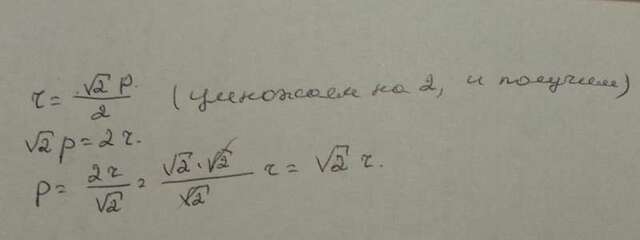 r = √2 p. / 2 (умножаем на 2, и получим)
√2 p = 2 r.
p = 2r / √2 = √2 · √2 / √2 r = √2 r.